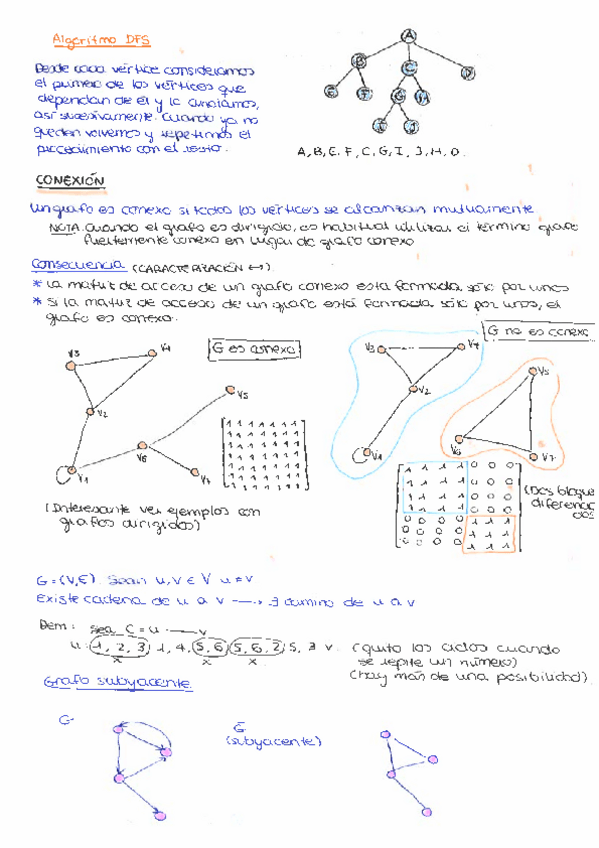 Algoritmo DFS
Desde cada vértice consideramos
el primero de los vértices que
dependan de él y lo anotamos,
así sucesivamente. Cuando ya no
queden volvemos y repetimos el
procedimiento con el resto.
A
B C D
E F G H
I J
A, B, E, F, C, G, I, J, H, D.
CONEXIÓN
Un grafo es conexo si todos los vértices se alcanzan mutuamente
NOTA: Cuando el grafo es dirigido, es habitual utilizar el término grafo
fuertemente conexo en lugar de grafo conexo
Consecuencia (CARACTERIZACIÓN ↔)
* La matriz de acceso de un grafo conexo está formada sólo por unos
* Si la matriz de acceso de un grafo está formada sólo por unos, el
grafo es conexo.
G es conexo
V3 V4
V2 V5
V6
V1 V7
1 1 1 1 1 1 1
1 1 1 1 1 1 1
1 1 1 1 1 1 1
1 1 1 1 1 1 1
1 1 1 1 1 1 1
1 1 1 1 1 1 1
1 1 1 1 1 1 1
(Interesante ver ejemplos con
grafos dirigidos)
G no es conexo
V3 V4
V2 V5
V6
V1 V7
1 1 1 1 0 0 0
1 1 1 1 0 0 0
1 1 1 1 0 0 0
1 1 1 1 0 0 0
0 0 0 0 1 1 1
0 0 0 0 1 1 1
0 0 0 0 1 1 1
(Dos bloque
diferencia
dos
G = (V,E). Sean u,v ∈ V u ≠ v
Existe cadena de u a v → ∃ camino de u a v
Dem: sea C = u — v
u 1, 2, 3, 1, 4, 5, 6, 5, 6, 2, 5, 3 v
x x x
(quito los ciclos cuando
se repite un número)
(hay más de una posibilidad).
Grafo subyacente
G
G
(subyacente)